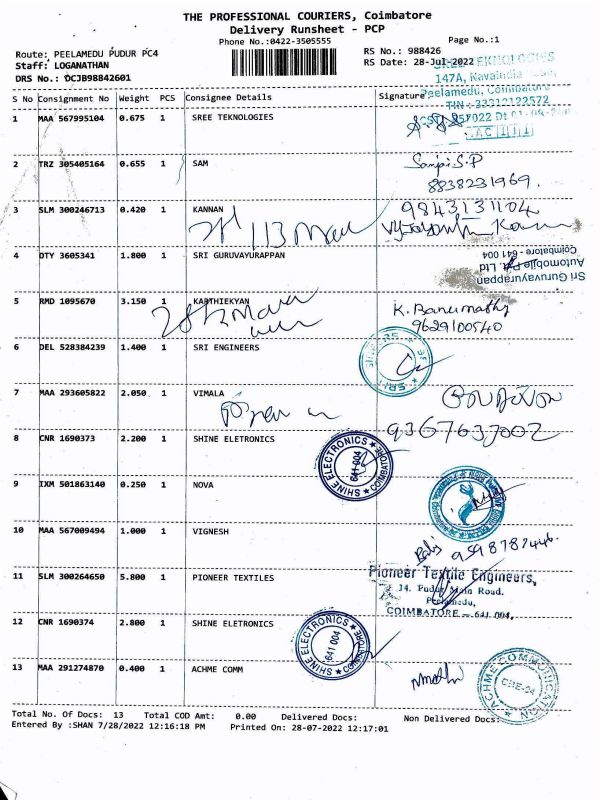 THE PROFESSIONAL COURIERS, Coimbatore
Delivery Runsheet - PCP
Phone No.:0422-3505555
Page No.:1
Route: PEELAMEDU PUDUR PC4
RS No.: 988426
Staff: LOGANATHAN
RS Date: 28-Jul-2022
DRS No.: DCJB98842601
SREE TEKNOLOGIES
147A, Navaindia
Peelamedu, Coimbatore
TIN : 33312122572
S No Consignment No Weight PCS Consignee Details Signature
1 MAA 567995104 0.675 1 SREE TEKNOLOGIES
2 TRZ 305405164 0.655 1 SAM
S.P
8838231969.
3 SLM 300246713 0.420 1 KANNAN
9843131104
4 OTY 3605341 1.800 1 SRI GURUVAYURAPPAN
Sri Guruvayurappan
Automobile P. Ltd
Coimbatore - 641 004
5 RMD 1095670 3.150 1 KARTHIEKYAN
K. Banumathy
9629100540
6 DEL 528384239 1.400 1 SRI ENGINEERS
7 MAA 293605822 2.050 1 VIMALA
9367637002
8 CNR 1690373 2.200 1 SHINE ELETRONICS
SHINE ELECTRONICS ★ COIMBATORE ★
641 004
9 IXM 501863140 0.250 1 NOVA
10 MAA 567009494 1.000 1 VIGNESH
11 SLM 300264650 5.800 1 PIONEER TEXTILES
Pioneer Textile Engineers,
14, Pudur Main Road.
Peelamedu,
COIMBATORE - 641 004.
12 CNR 1690374 2.800 1 SHINE ELETRONICS
SHINE ELECTRONICS ★ COIMBATORE ★
641 004
13 MAA 291274870 0.400 1 ACHME COMM
ACHME COMMUNICATION
CBE-04
Total No. Of Docs: 13 Total COD Amt: 0.00 Delivered Docs: Non Delivered Docs:
Entered By :SHAN 7/28/2022 12:16:18 PM Printed On: 28-07-2022 12:17:01